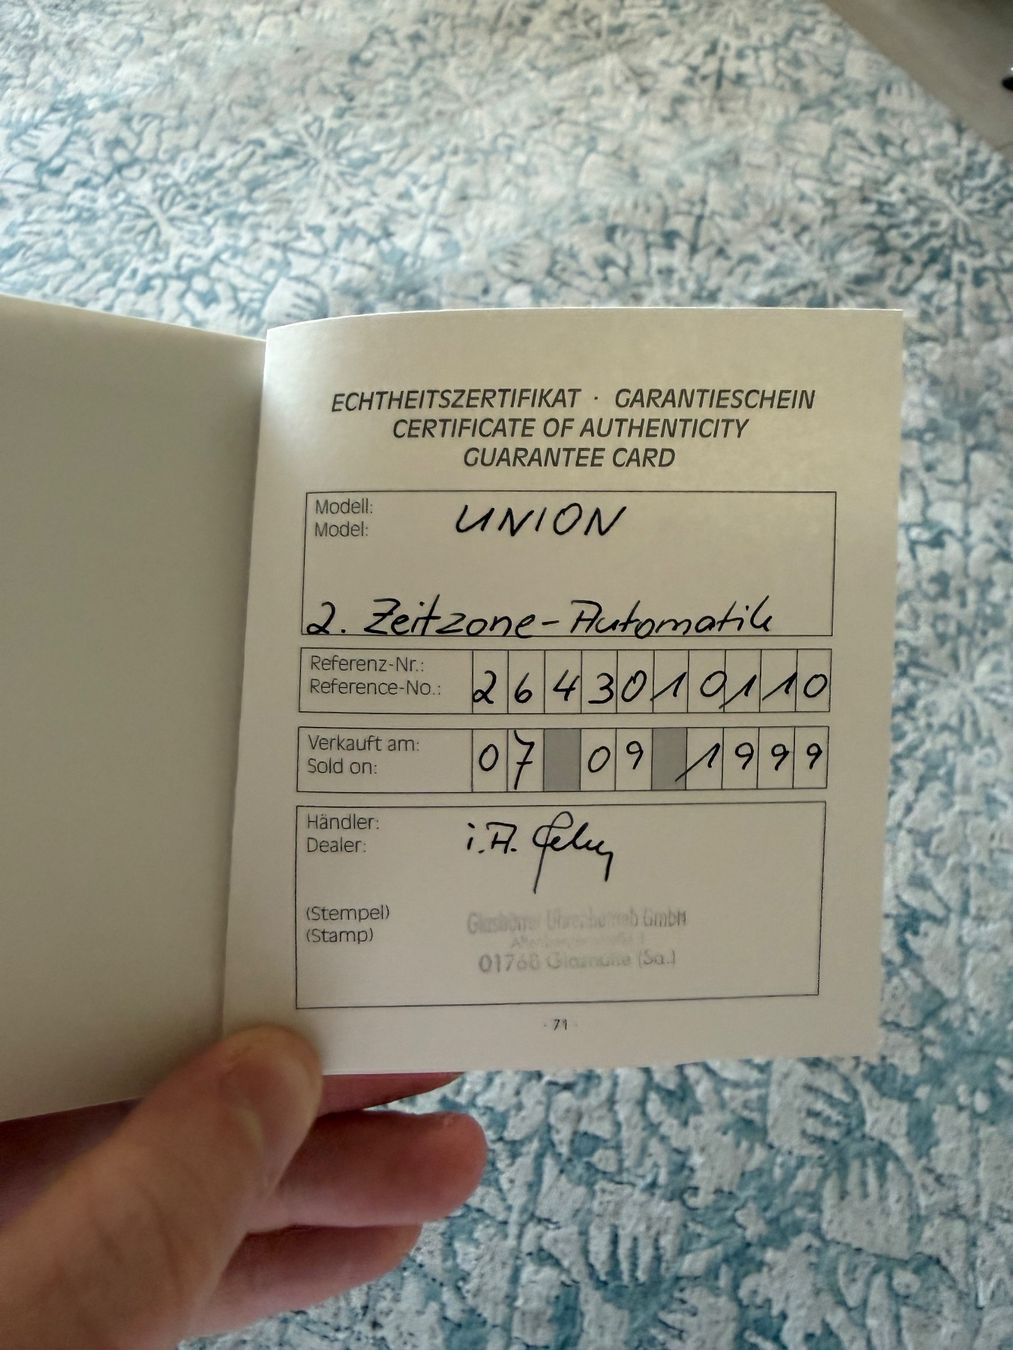 ECHTHEITSZERTIFIKAT · GARANTIESCHEIN
CERTIFICATE OF AUTHENTICITY
GUARANTEE CARD
Modell:
Model:
UNION
2. Zeitzone-Automatik
Referenz-Nr.:
Reference-No.:
2643010110
Verkauft am:
Sold on:
07 09 1999
Händler:
Dealer:
i.A.
(Stempel)
(Stamp)
Glashütter Uhrenbetrieb GmbH
01768 Glashütte (Sa.)
- 71 -